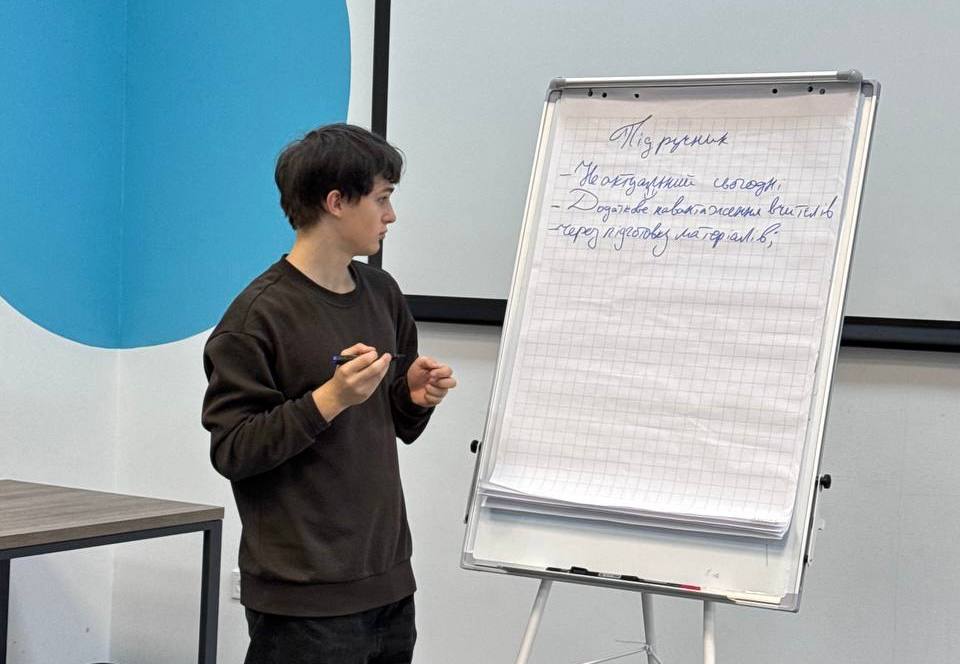 Підручник
- Неактуальний сьогодні
- Додаткове навантаження вчителів
- через підготовку матеріалів;